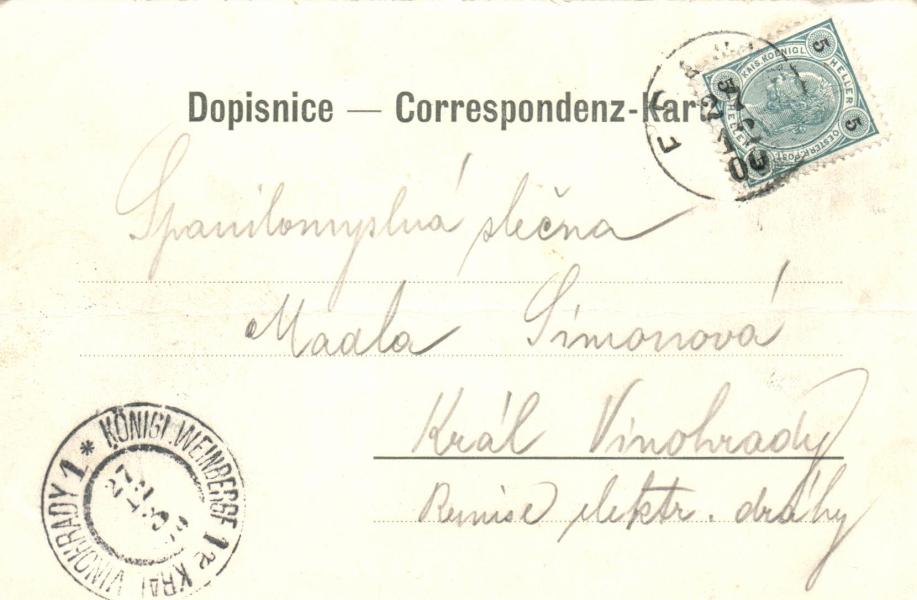 Dopisnice — Correspondenz-Kar
5 KAIS. KOENIGL. 5
HELLER HELLER
5 OESTERR. POST.
00
Spanilomyslná slečna
Madla Šimonová
Král Vinohrady
Remise elektr. dráhy
* KÖNIGL. WEINBERGE 1 *
KRÁL. VINOHRADY 1